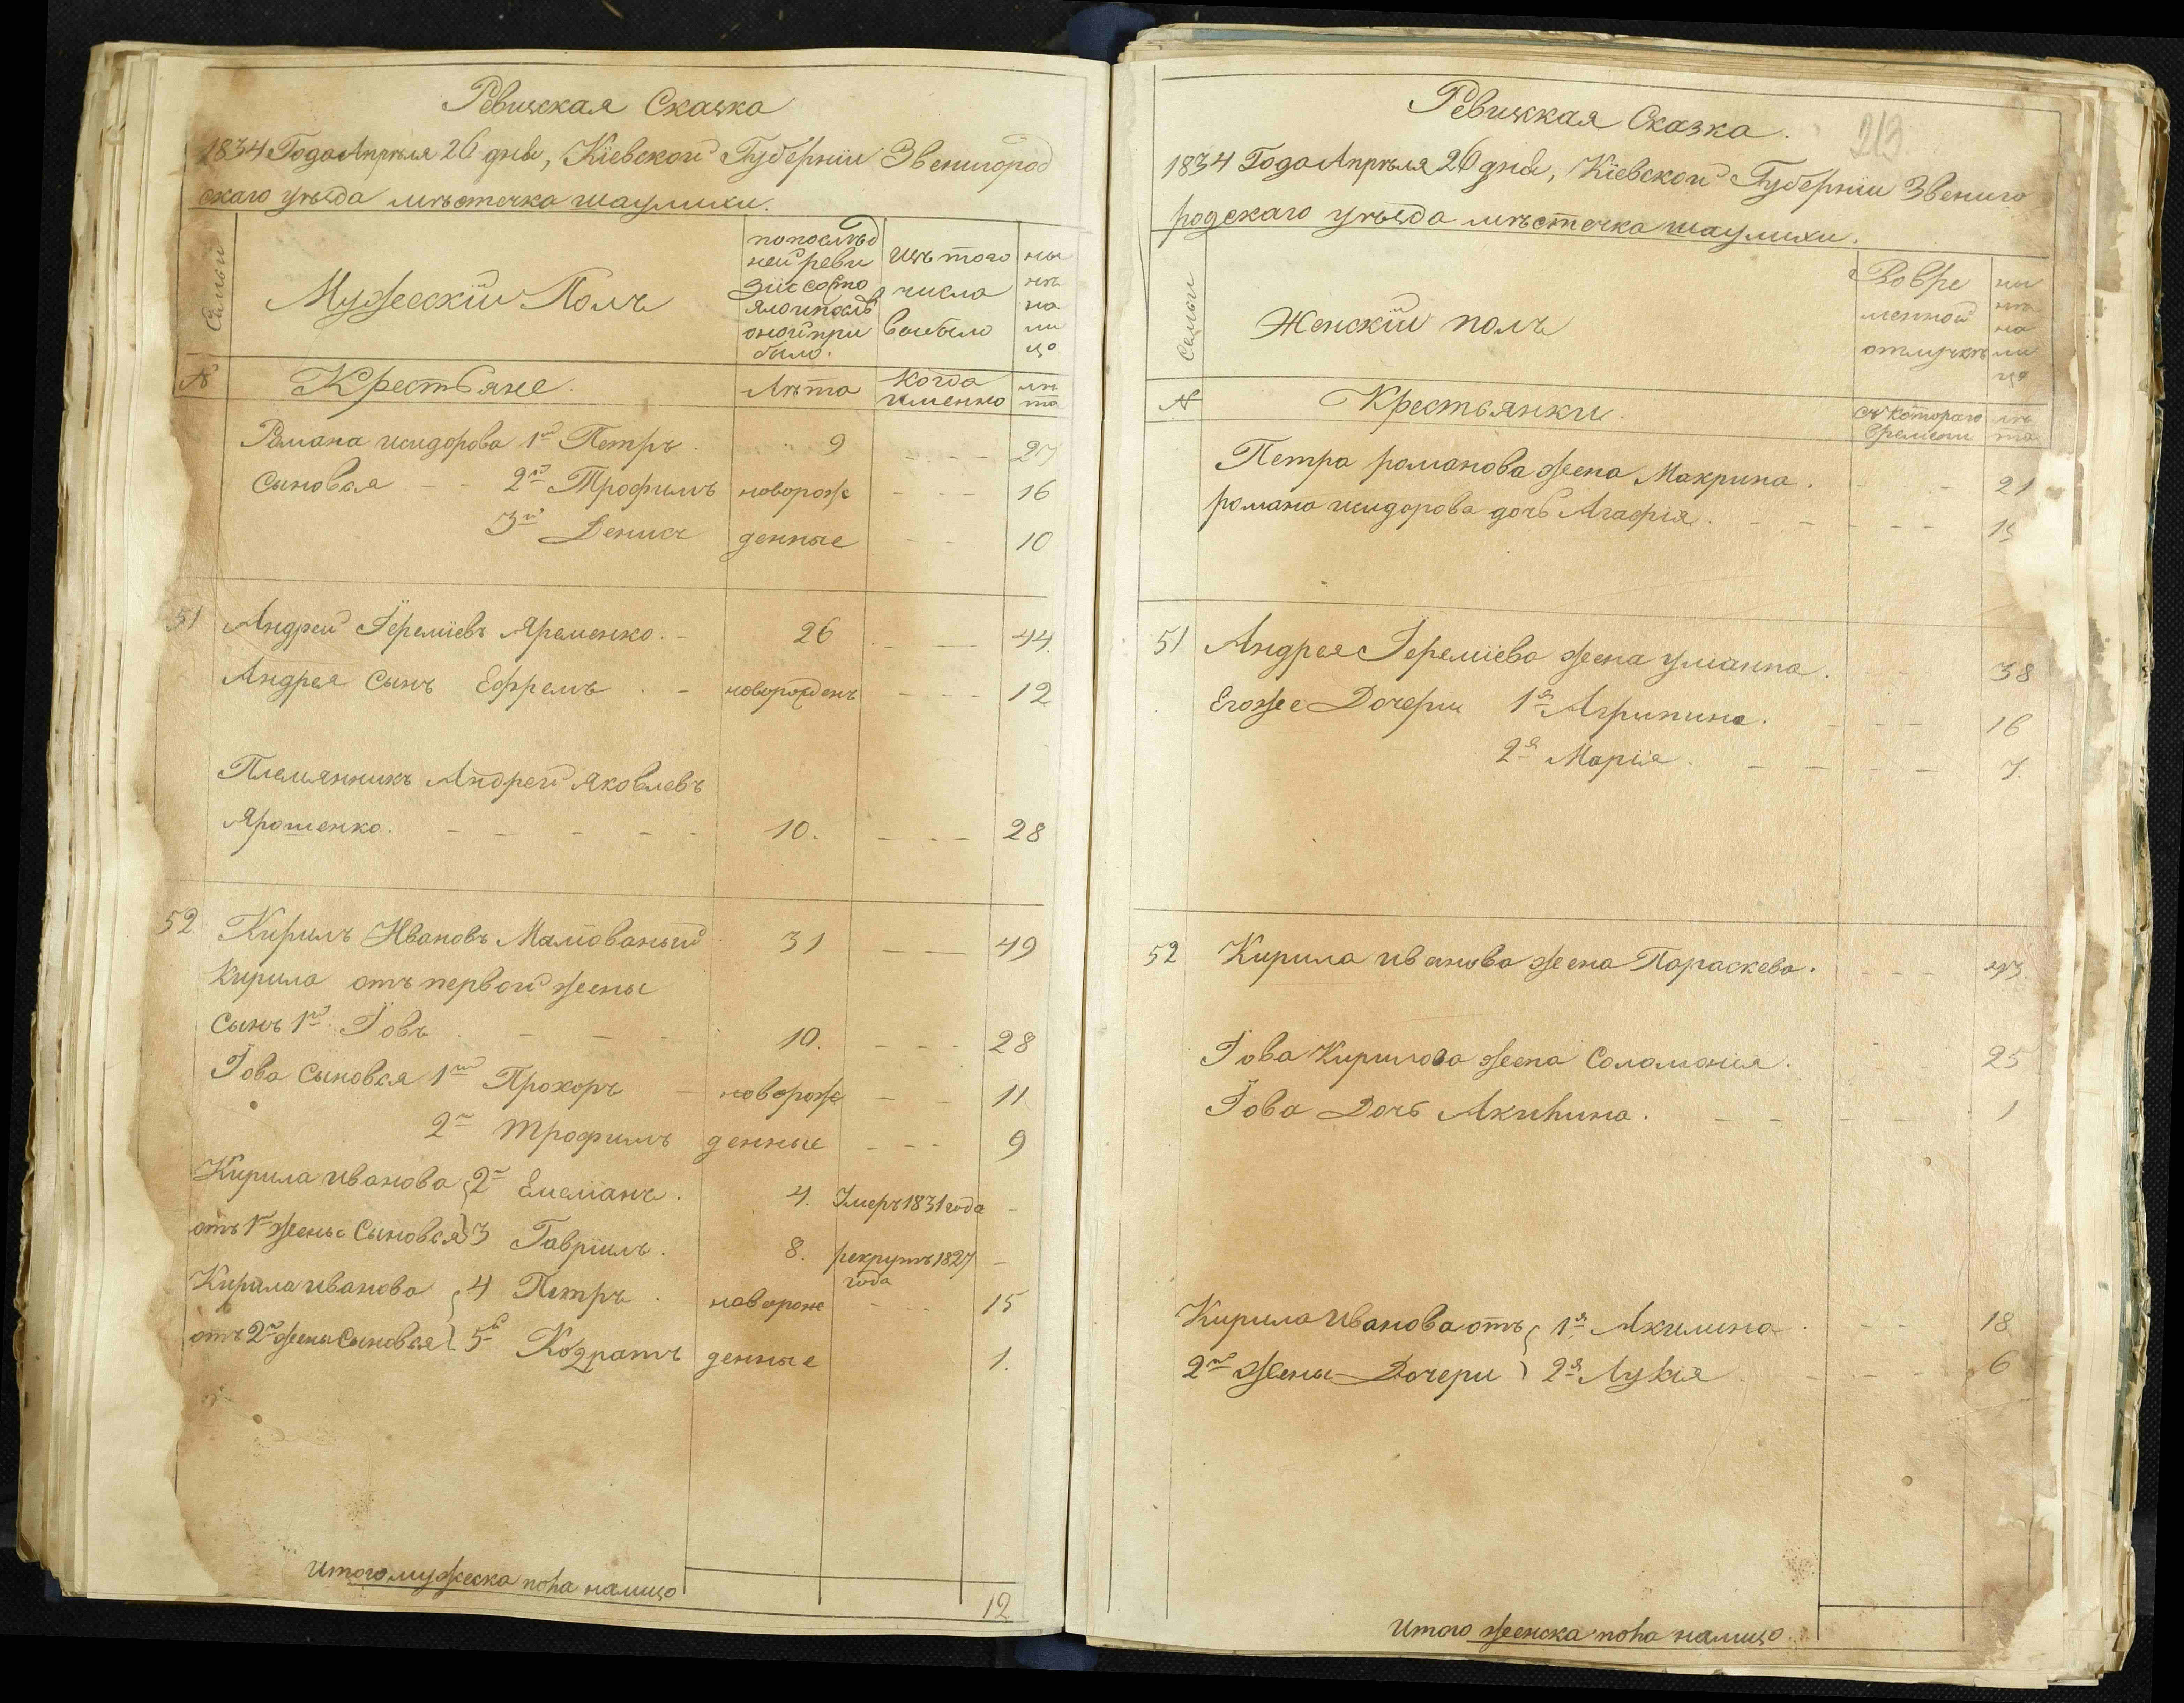 Ревизская Сказка
1834 Года Апрѣля 26 дня, Кіевской Губерніи Звенигород
скаго уѣзда мѣстечка шаулихи.
Семьи
Мужескій Полъ
попослѣд
ней реви
зіи состо
ялоипослѣ
онойпри
было.
Изъ того
числа
выбыло
ны
нѣ
на
ли
цо
№
Крестьяне.
Лѣта
Когда
именно
лѣ
та
Романа исидорова 1й Петръ. 9 - - - - 27
Сыновья - - 2й Трофимъ новорож - - - 16
3й Денисъ денные - - - 10
51 Андрей Іереміевъ Яременко. - 26 - - - 44.
Андрея Сынъ Ефремъ . - новорожденъ - - - - 12
Племянникъ Андрей Яковлевъ
Ярошенко. - - - - - - 10. - - - - 28
52 Кирилъ Ивановъ Малёваный 31 - - - 49
Кирила отъ первой жены
Сынъ 1й Іовъ - - - 10. - - - - 28
Іова Сыновья 1й Прохоръ - новорож - - 11
2й Трофимъ денные - - - 9
Кирила иванова 2й Емеліанъ. 4. Умеръ 1831 года -
отъ 1й жены Сыновья 3 Гавріилъ. 8. рекрутъ 1827 -
года
Кирила иванова 4 Петръ. новорож - - 15
отъ 2й жены Сыновья 5й Кодратъ денные 1.
Итого мужеска пола налицо 12
Ревизская Сказка.
213
1834 Года Апрѣля 26 дня, Кіевской Губерніи Звениго
родскаго уѣзда мѣстечка шаулихи.
Семьи
Женскій полъ
Вовре
менной
отлучкѣ
ны
нѣ
на
ли
цо
№
Крестьянки.
съ котораго
времени
лѣ
та
Петра романова жена Макрина. - - - 21
романа исидорова дочь Агафія. - - - - - 15
51 Андрея Іереміева жена уліанна. - - 38
Егоже Дочери 1я Агрипина. - - - - 16
2я Марія. - - - - - 7.
52 Кирила иванова жена Параскева. - - - 43.
Іова Кирилова жена Соломонія. - - 25
Іова Дочь Акилина. - - - - 1
Кирила Иванова отъ 1я Акилина. - - - 18
2й Жены Дочери 2я Лукія. - - - - 6
Итого женска пола налицо.